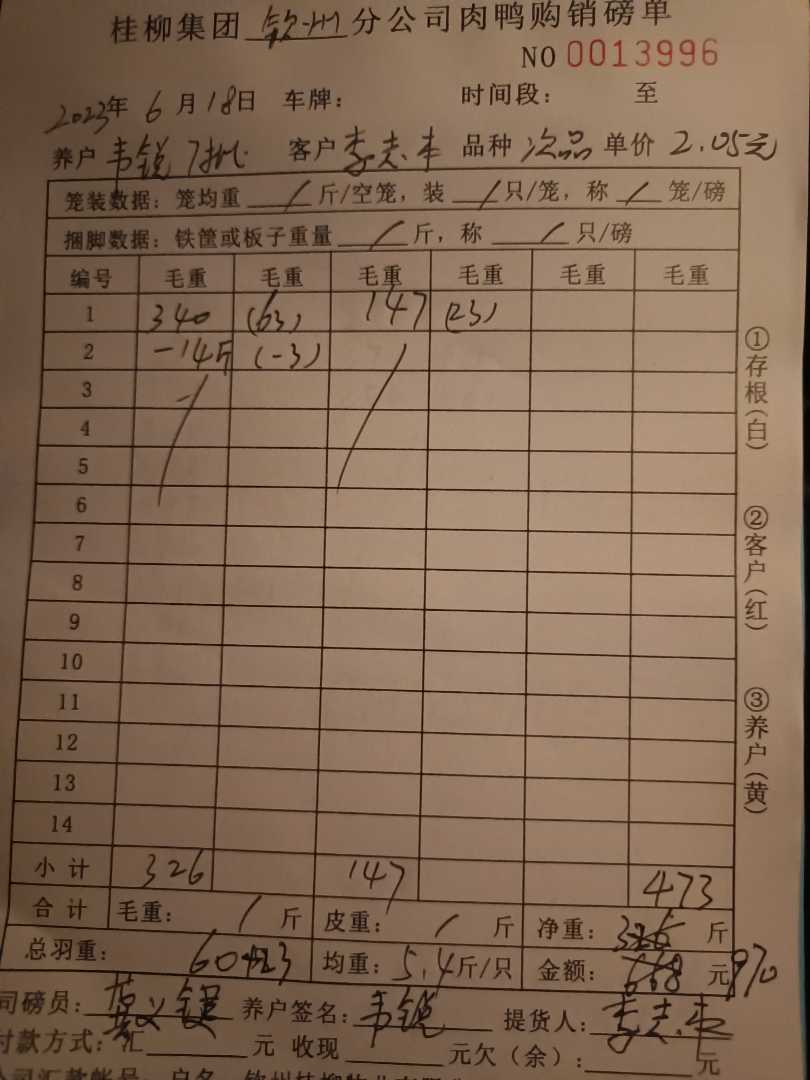 桂柳集团 钦州 分公司肉鸭购销磅单
NO 0013996
2023年 6 月 18日 车牌： 时间段： 至
养户 韦锐 7批 客户 李志丰 品种 次品 单价 2.05元
笼装数据：笼均重 / 斤/空笼，装 / 只/笼，称 / 笼/磅
捆脚数据：铁筐或板子重量 / 斤，称 / 只/磅
编号 毛重 毛重 毛重 毛重 毛重 毛重
1 340 (63) 147 (23)
2 -14斤 (-3)
3
4
5
6
7
8
9
10
11
12
13
14
小 计 326 147 473
合 计 毛重： / 斤 皮重： / 斤 净重： 326 斤
总羽重： 60+23 均重： 5.4 斤/只 金额： 668 元 970
司磅员： 养户签名： 韦锐 提货人： 李志丰
付款方式：汇 元 收现 元欠（余）： 元
①存根（白）
②客户（红）
③养户（黄）